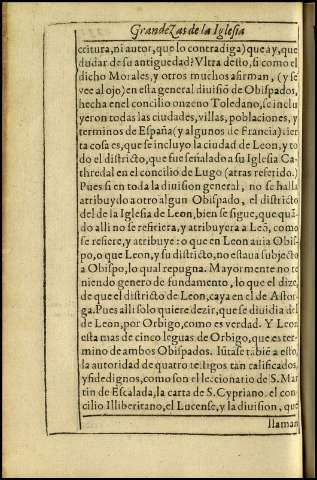 GrandeZas de la Iglesia
critura, ni autor, que lo contradiga) que ay, que
dudar de su antiguedad? Vltra desto, si como el
dicho Morales, y otros muchos afirman, (y se
vee al ojo) en esta general diuisiõ de Obispados,
hecha en el concilio onzeno Toledano, se inclu
yeron todas las ciudades, villas, poblaciones, y
terminos de España (y algunos de Francia) cier
ta cosa es, que se incluyo la ciudad de Leon, y to
do el districto, que fue señalado a su Iglesia Ca-
thredal en el concilio de Lugo (atras referido.)
Pues si en toda la diuision general, no se halla
atribuydo a otro algun Obispado, el districto
del de la Iglesia de Leon, bien se sigue, que quã-
do alli no se refiriera, y atribuyera a Leõ, como
se refiere, y atribuye: o que en Leon auia Obis-
po, o que Leon, y su districto, no estaua subjecto
a Obispo, lo qual repugna. Mayormente no te
niendo genero de fundamento, lo que el dize,
de que el districto de Leon, caya en el de Astor-
ga. Pues alli solo quiere dezir, que se diuidia del
de Leon, por Orbigo, como es verdad. Y Leon
esta mas de cinco leguas de Orbigo, que es ter-
mino de ambos Obispados. Iũtase tãbiẽ a esto,
la autoridad de quatro testigos tan calificados,
y fidedignos, como son el lectionario de S. Mar
tin de Escalada, la carta de S. Cypriano. el con-
cilio Illiberitano, el Lucense, y la diuision, que
llaman